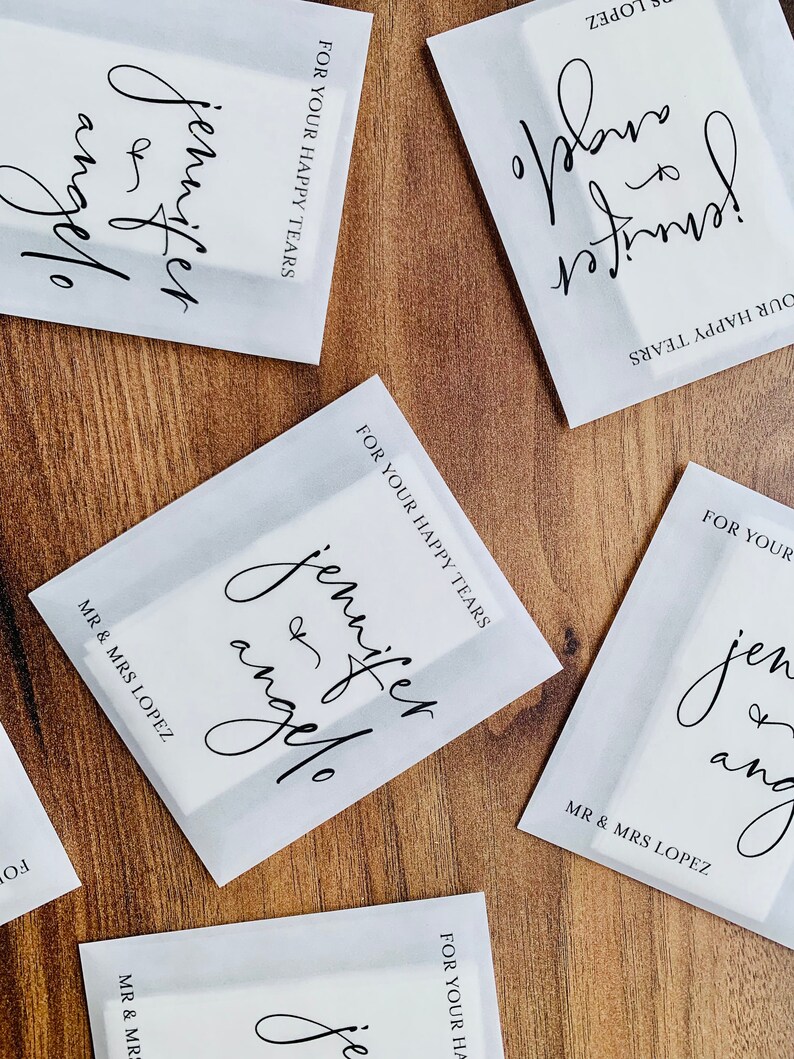 FOR YOUR HAPPY TEARS
jennifer
&
angelo
RS LOPEZ
angelo
&
jennifer
OUR HAPPY TEARS
FOR YOUR HAPPY TEARS
jennifer
&
angelo
MR & MRS LOPEZ
FOR YOUR
jen
&
ang
MR & MRS LOPEZ
FO
FOR YOUR HA
je
MR & MRS